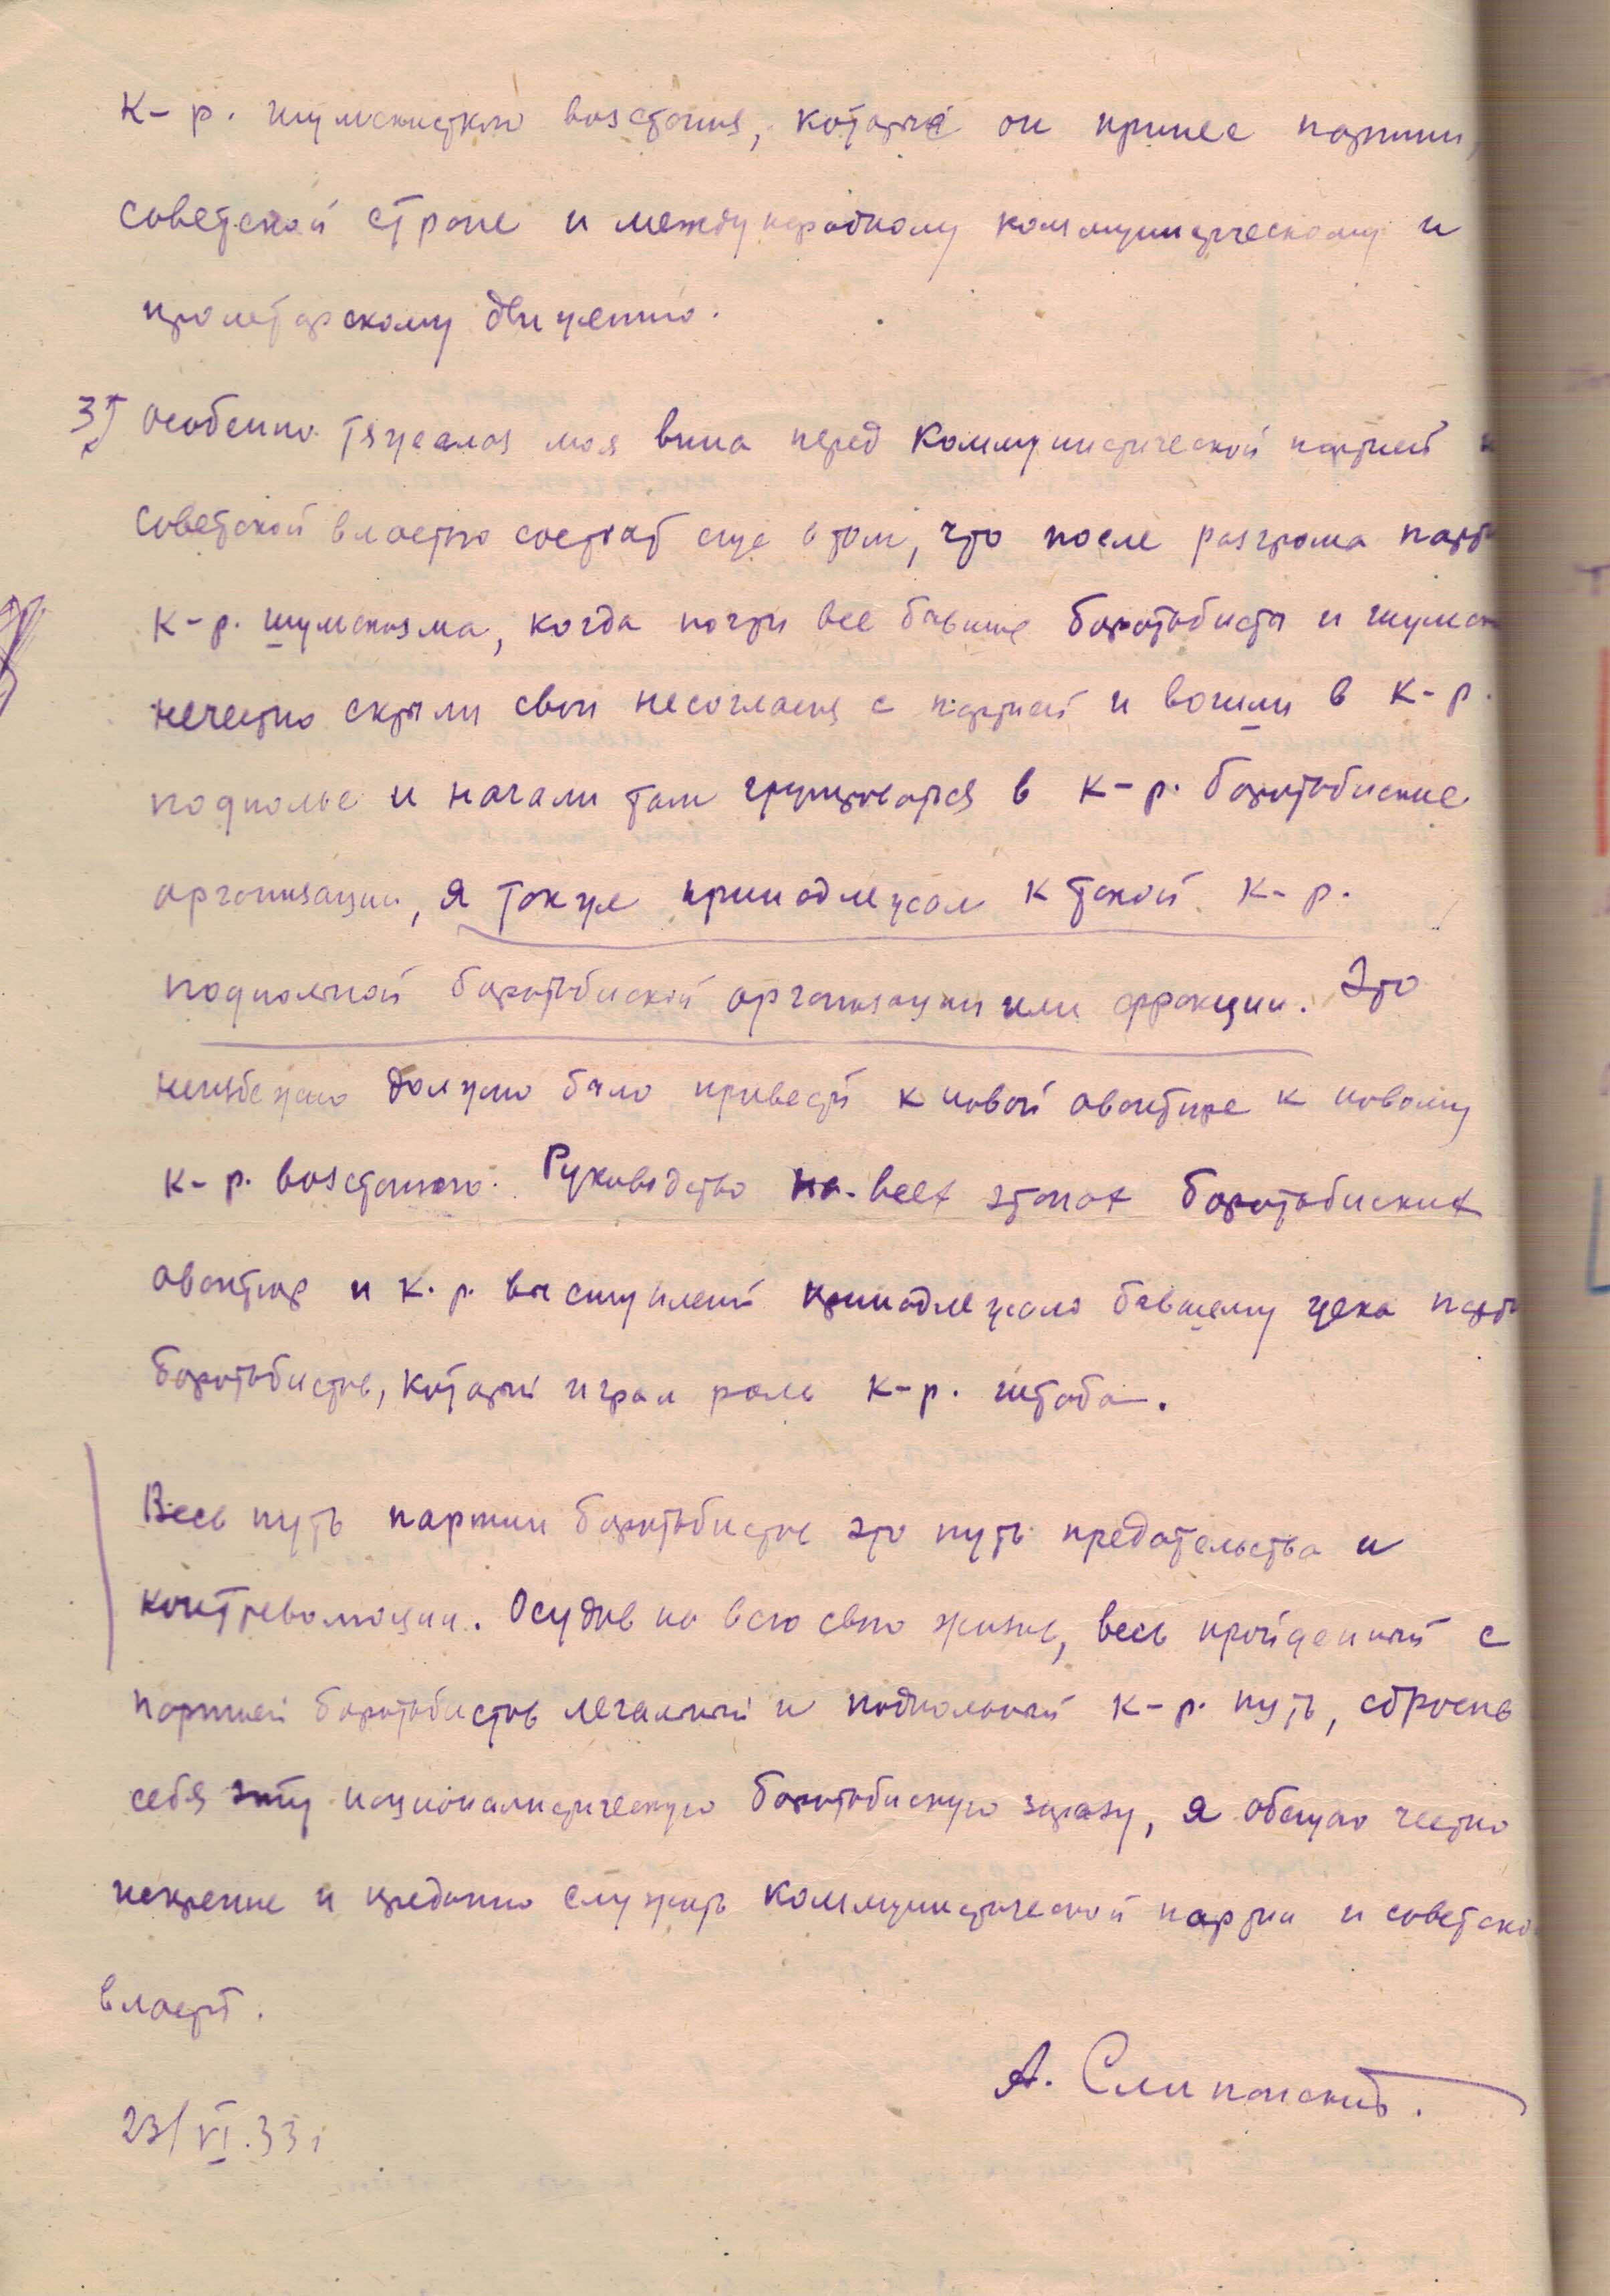 к-р. шумскисткого возстания, которые он принес партии,
советской стране и международному коммунистическому и
пролетарскому движению.
3) Особенно тяжелая моя вина перед коммунистической партией и
советской властью состоит еще в том, что после разгрома парт
к-р. шумскизма, когда почти все бывшие боротьбисты и шумск
нечестно скрыли свои несогласия с партией и вошли в к-р.
подполье и начали там групироватся в к-р. боротьбиские
организации, я также принадлежал к такой к-р.
подпольной боротьбиской организации или фракции. Это
неизбежно должно было привести к новой авантюре к новому
к-р. возстанию. Руководство на всех этапах боротьбиских
авантюр и к.р. выступлений принадлежало бывшему цека парти
боротьбистов, который играл роль к-р. штаба.
Весь путь партии боротьбистов это путь предательства и
контреволюции. Осудив на всю свою жизнь, весь пройденный с
партией боротьбистов легальный и подпольный к-р. путь, сбросив
себя эту националистическую боротьбискую заразу, я обещаю честно
искренне и преданно служить коммунистической партии и советско
власти.
А. Слипанский.
23/VI.33 г